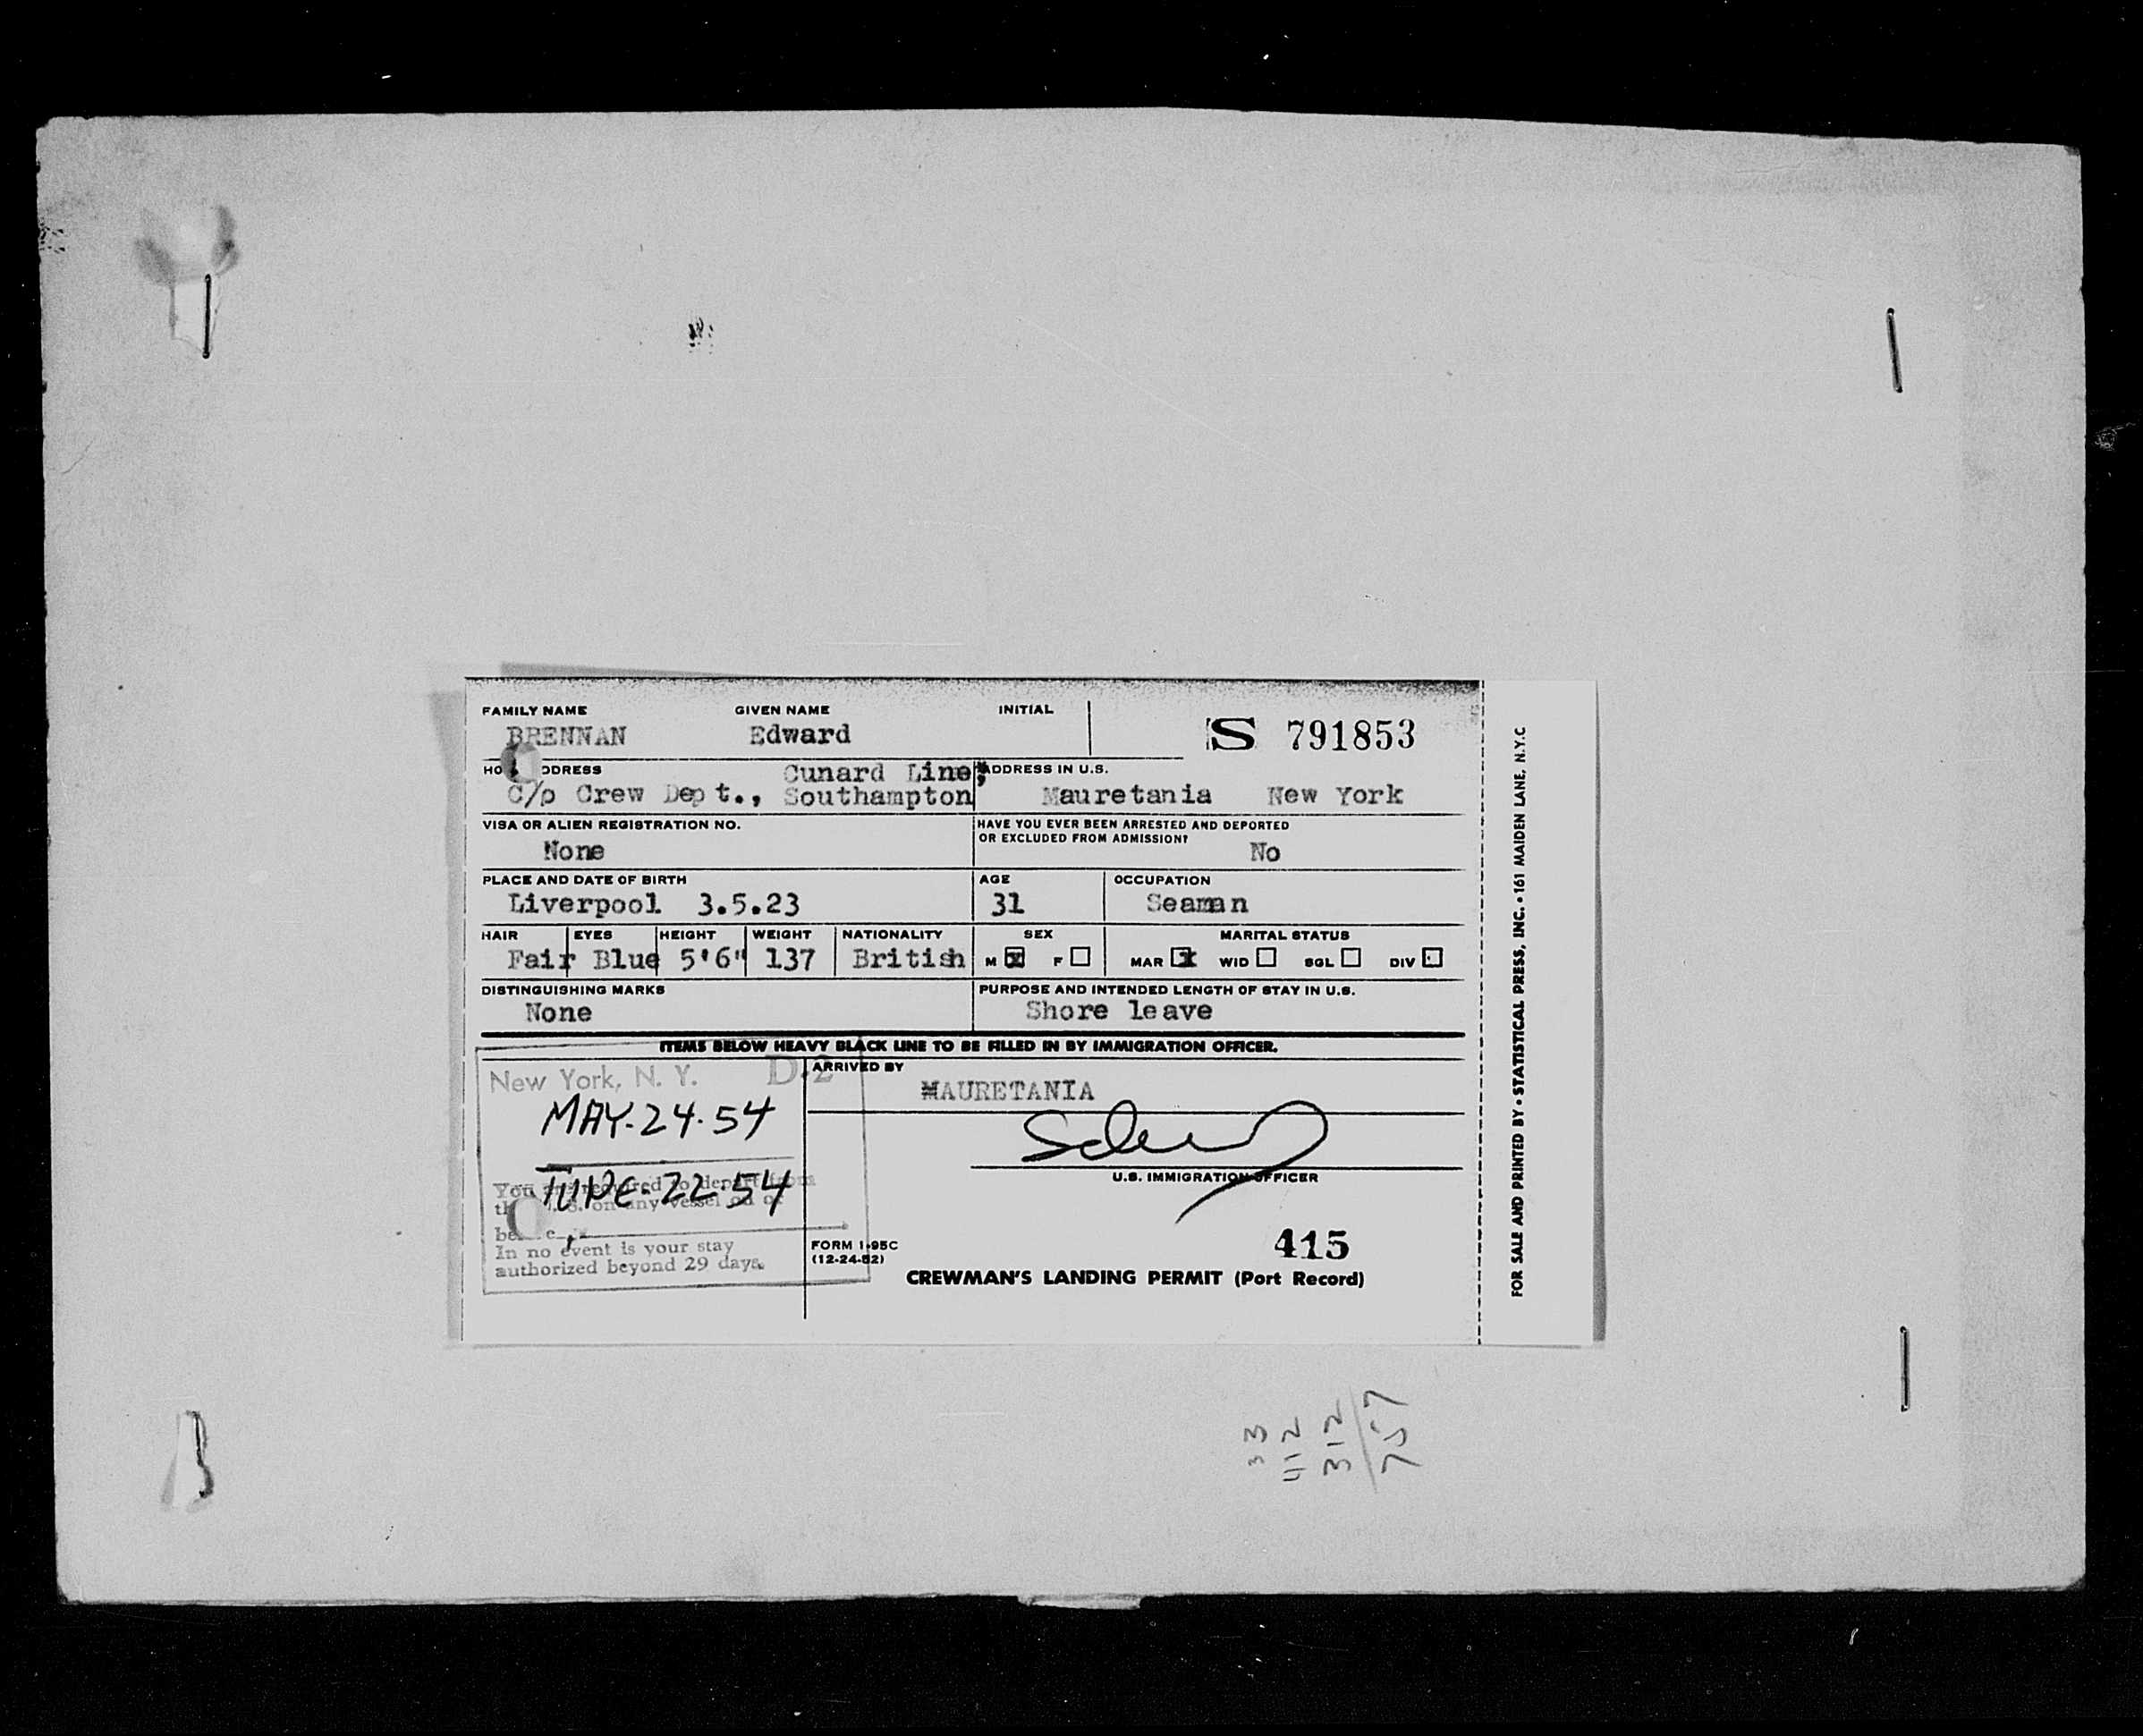 FAMILY NAME GIVEN NAME INITIAL
BRENNAN Edward S 791853
HO DDRESS Cunard Line, ADDRESS IN U.S.
C/o Crew Dept., Southampton Mauretania New York
VISA OR ALIEN REGISTRATION NO. HAVE YOU EVER BEEN ARRESTED AND DEPORTED
OR EXCLUDED FROM ADMISSION?
None No
PLACE AND DATE OF BIRTH AGE OCCUPATION
Liverpool 3.5.23 31 Seaman
HAIR EYES HEIGHT WEIGHT NATIONALITY SEX MARITAL STATUS
Fair Blue 5'6" 137 British M x F MAR x WID SGL DIV
DISTINGUISHING MARKS PURPOSE AND INTENDED LENGTH OF STAY IN U.S.
None Shore leave
ITEMS BELOW HEAVY BLACK LINE TO BE FILLED IN BY IMMIGRATION OFFICER.
New York, N. Y. D-2 ARRIVED BY
MAURETANIA
MAY-24-54
You required to depart from
JUNE-22-54
U.S. IMMIGRATION OFFICER
on any vessel on or
In no event is your stay
authorized beyond 29 days.
FORM I-95C
(12-24-52)
415
CREWMAN'S LANDING PERMIT (Port Record)
FOR SALE AND PRINTED BY • STATISTICAL PRESS, INC. • 161 MAIDEN LANE, N.Y.C
33
412
312
757